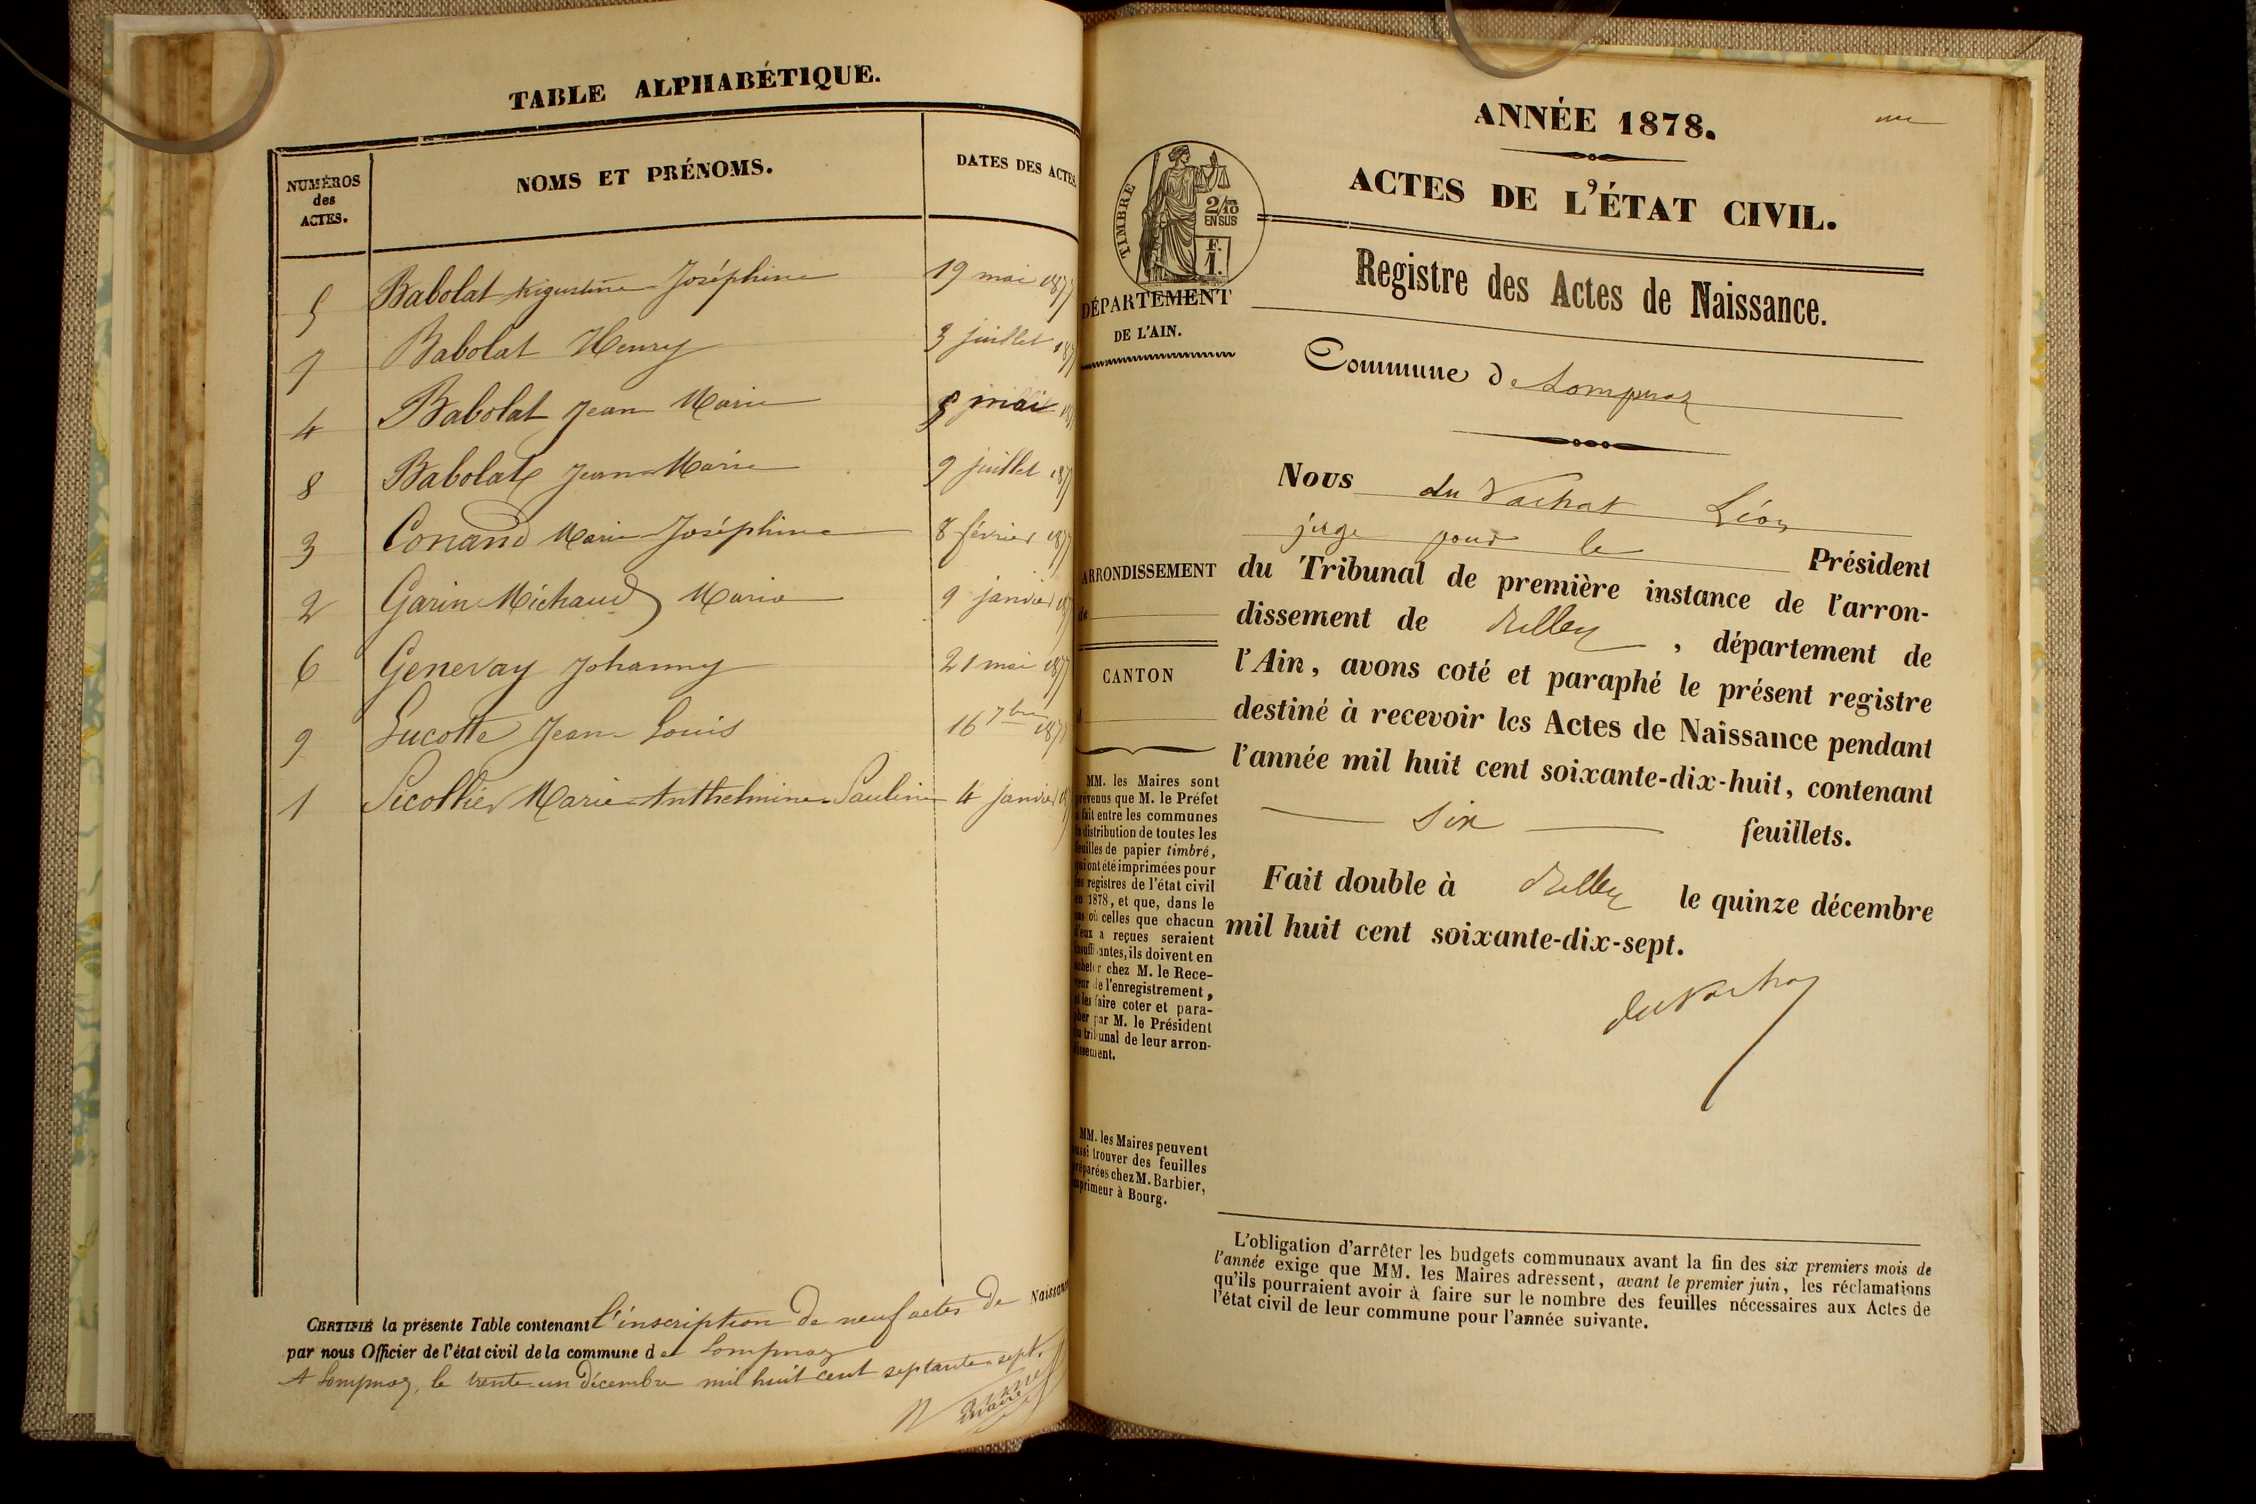 TABLE ALPHABÉTIQUE.
NUMÉROS des ACTES. NOMS ET PRÉNOMS. DATES DES ACTES
5 Babolat Augustine Joséphine 19 mai 1877
7 Babolat Henry 3 juillet 187
4 Babolat Jean Marie 5 mai 18
8 Babolat Jean Marie 9 juillet 187
3 Conand Marie Joséphine 8 février 1877
2 Garin Michaud Maria 9 janvier
6 Genevay Johanny 21 mai 1877
9 Lucotte Jean Louis 16 7bre 187
1 Sicollier Marie Anthelmine Pauline 4 janvier
CERTIFIÉ la présente Table contenant l'inscription de neuf actes de Naissance
par nous Officier de l'état civil de la commune de Lompnaz
A Lompnaz, le trente un Décembre mil huit cent septante sept.
Maire
ANNÉE 1878.
une
ACTES DE L'ÉTAT CIVIL.
TIMBRE
2/10
EN SUS
F.
1.
DÉPARTEMENT
DE L'AIN.
Registre des Actes de Naissance.
Commune de Lompnaz
Nous du Vachat Léon
juge pour le Président
du Tribunal de première instance de l'arron-
dissement de Belley, département de
l'Ain, avons coté et paraphé le présent registre
destiné à recevoir les Actes de Naissance pendant
l'année mil huit cent soixante-dix-huit, contenant
six feuillets.
Fait double à Belley le quinze décembre
mil huit cent soixante-dix-sept.
du Vachat
ARRONDISSEMENT
de
CANTON
d
MM. les Maires sont
prévenus que M. le Préfet
a fait entre les communes
la distribution de toutes les
feuilles de papier timbré,
qui ont été imprimées pour
les registres de l'état civil
en 1878, et que, dans le
cas où celles que chacun
d'eux a reçues seraient
insuffisantes, ils doivent en
acheter chez M. le Rece-
veur de l'enregistrement,
et les faire coter et para-
pher par M. le Président
du tribunal de leur arron-
dissement.
MM. les Maires peuvent
aussi trouver des feuilles
préparées chez M. Barbier,
imprimeur à Bourg.
L'obligation d'arrêter les budgets communaux avant la fin des six premiers mois de
l'année exige que MM. les Maires adressent, avant le premier juin, les réclamations
qu'ils pourraient avoir à faire sur le nombre des feuilles nécessaires aux Actes de
l'état civil de leur commune pour l'année suivante.